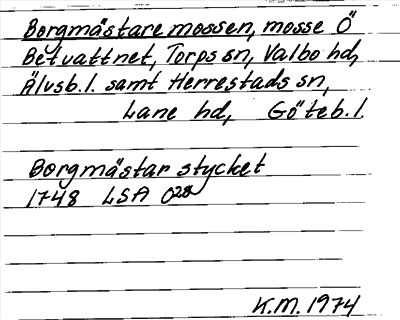 Borgmästaremossen, mosse Ö
Betvattnet, Torps sn, Valbo hd,
Älvsb. l. samt Herrestads sn,
Lane hd, Göteb. l.
Borgmästar stycket
1748 LSA O28
K.M. 1974